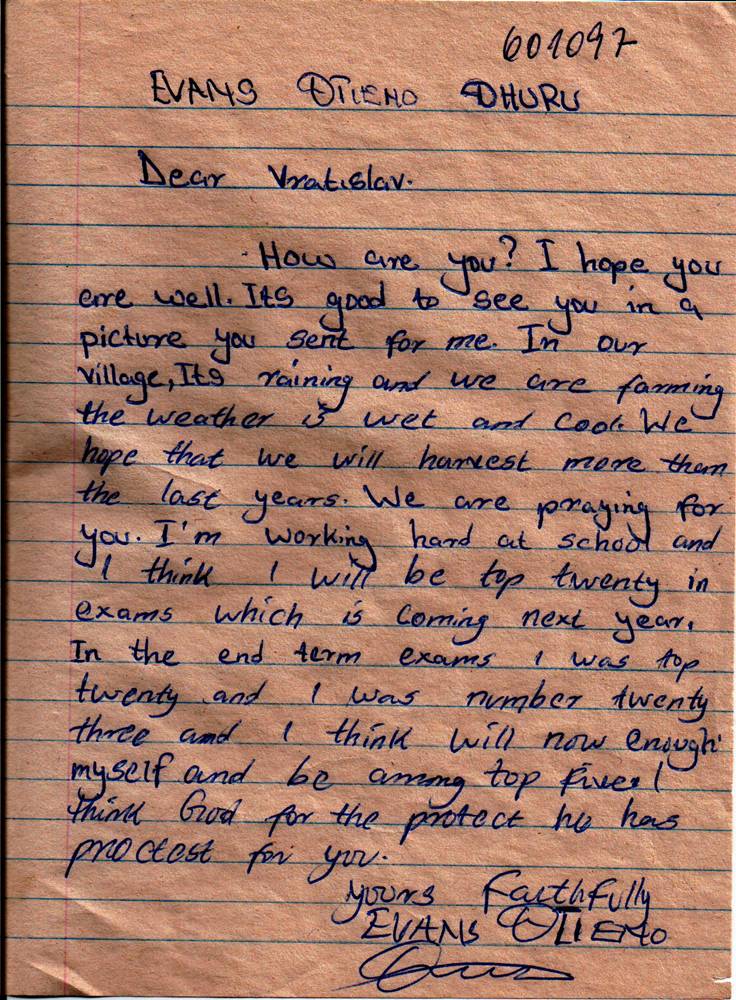 601097
EVANS OTIENO DHURU
Dear Vratislav.
How are you? I hope you
are well. Its good to see you in a
picture you sent for me. In our
village, Its raining and we are farming
the weather is wet and cool. We
hope that we will harvest more than
the last years. We are praying for
you. I'm working hard at school and
I think I will be top twenty in
exams which is coming next year.
In the end term exams I was top
twenty and I was number twenty
three and I think will now enough
myself and be among top five. I
think God for the protect he has
proctest for you.
yours Faithfully
EVANS OTIENO